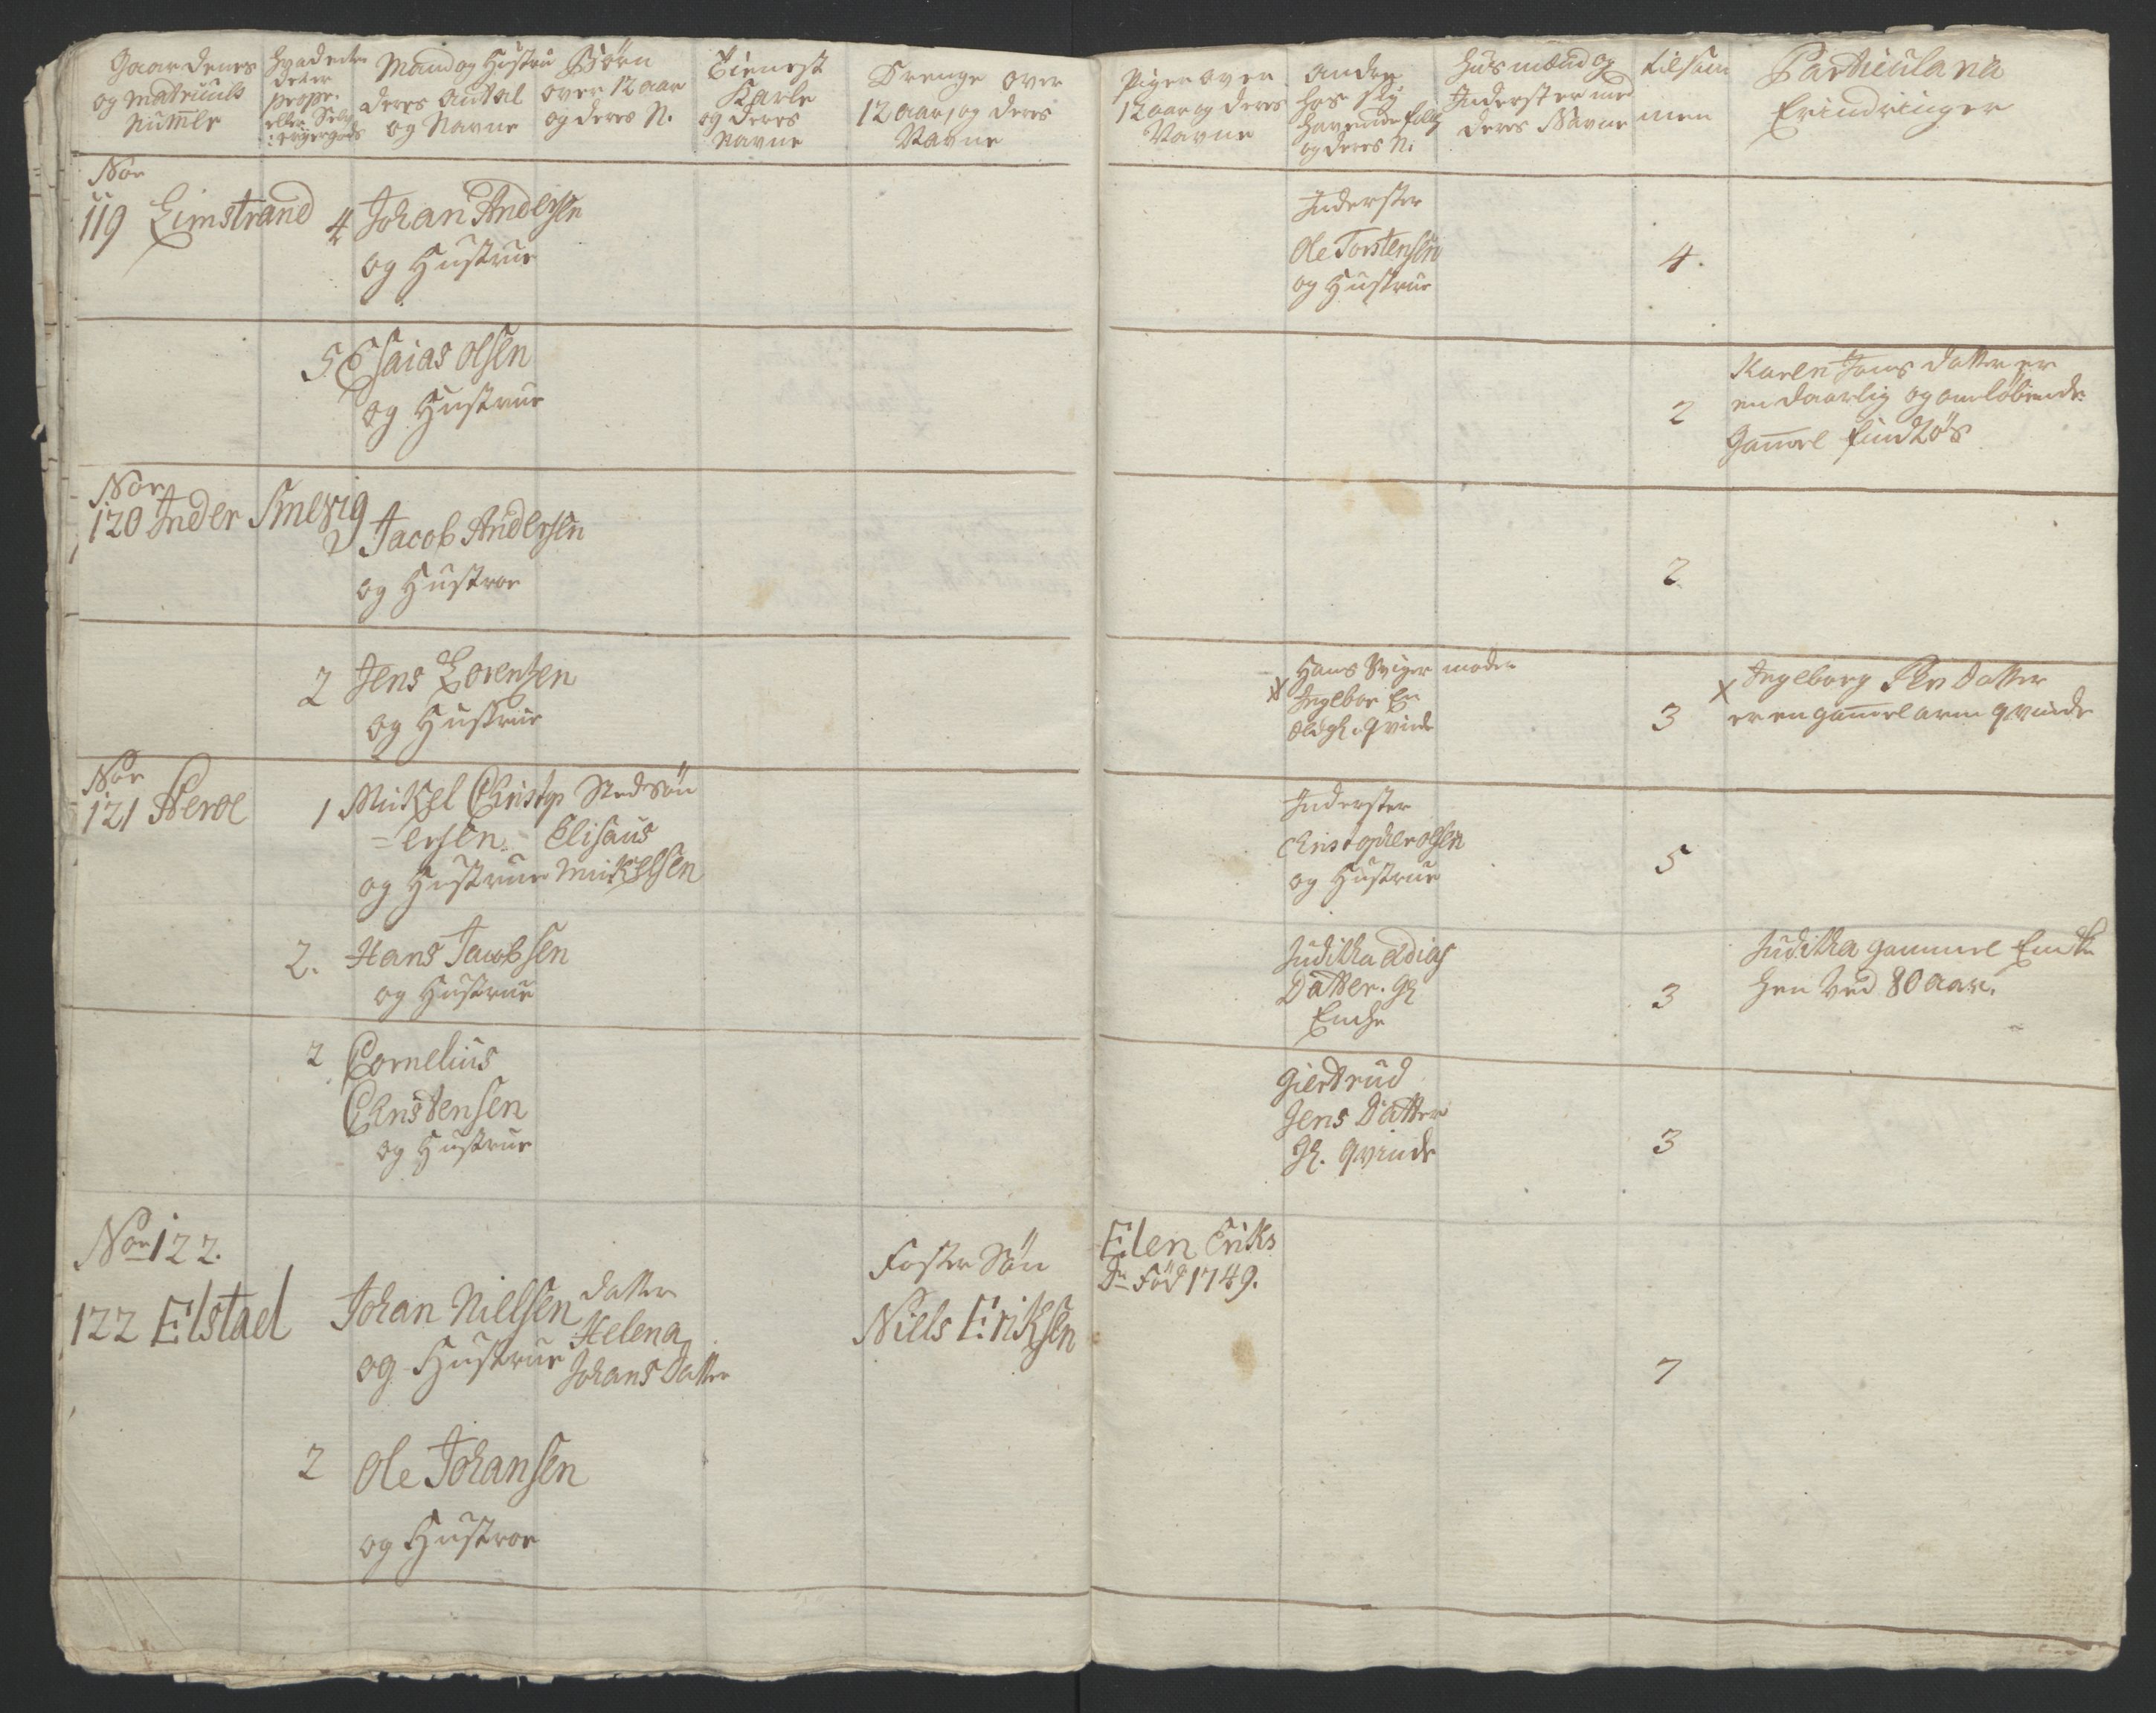 Gaardenes
og Matriculs
Numer
hvad enten
det er
propr.
eller Selv
eyergods
Mand og Hustru
deres Antal
og Navne
Börn
over 12 aar
og deres N.
Tienest
Karle
og deres
Navne
Drenge over
12 aar, og deres
Navne
Piger over
12 aar og deres
Navne
Andre
hos sig
havende folk
og deres N:
Huusmænd og
Inderster med
deres Navne
tilsam
men
Particularia
Erindringer
Nor
119 Limstrand 4 Johan Andersen
og Hustrue
Inderster
Ole Torstensen
og Hustrue
4.
5 Esaias Olsen
og Hustrue
2
Karen Jons datter er
en daarlig og omlöbende
Gamel
Nor
120 Inder Smevig
2 Jacob Andersen
og Hustroe
2
2 Jens Lorentzen
og Hustrue
x Hans Sviger moder
Ingebor En
Qvinde
3
x Ingeborg datter
er en gamel arm qvinde
Nor
121 Heroe 1 Mickel Christop
= ersen.
og Hustrue
Stedsön
Elisæus
Mickelsen
Inderster
Christopher Olsen
og Hustrue
5
2. Hans Jacobsen
og Hustrue
Juditha Edias
Datter. Gl
Encke
3
Juditha gammel Encke
hen ved 80 aar.
2 Cornelius
Christensen
og Hustrue
Giertrud
Jens Datter
Gl. Qvinde
3
Nor 122.
122 Elstad Johan Nielsen
og Hustrue
datter
Helena
Johans Datter
Foster Sön
Niels Eriksen
Elen Eriks
Dr Föd 1749.
7
2 Ole Johansen
og Hustroe